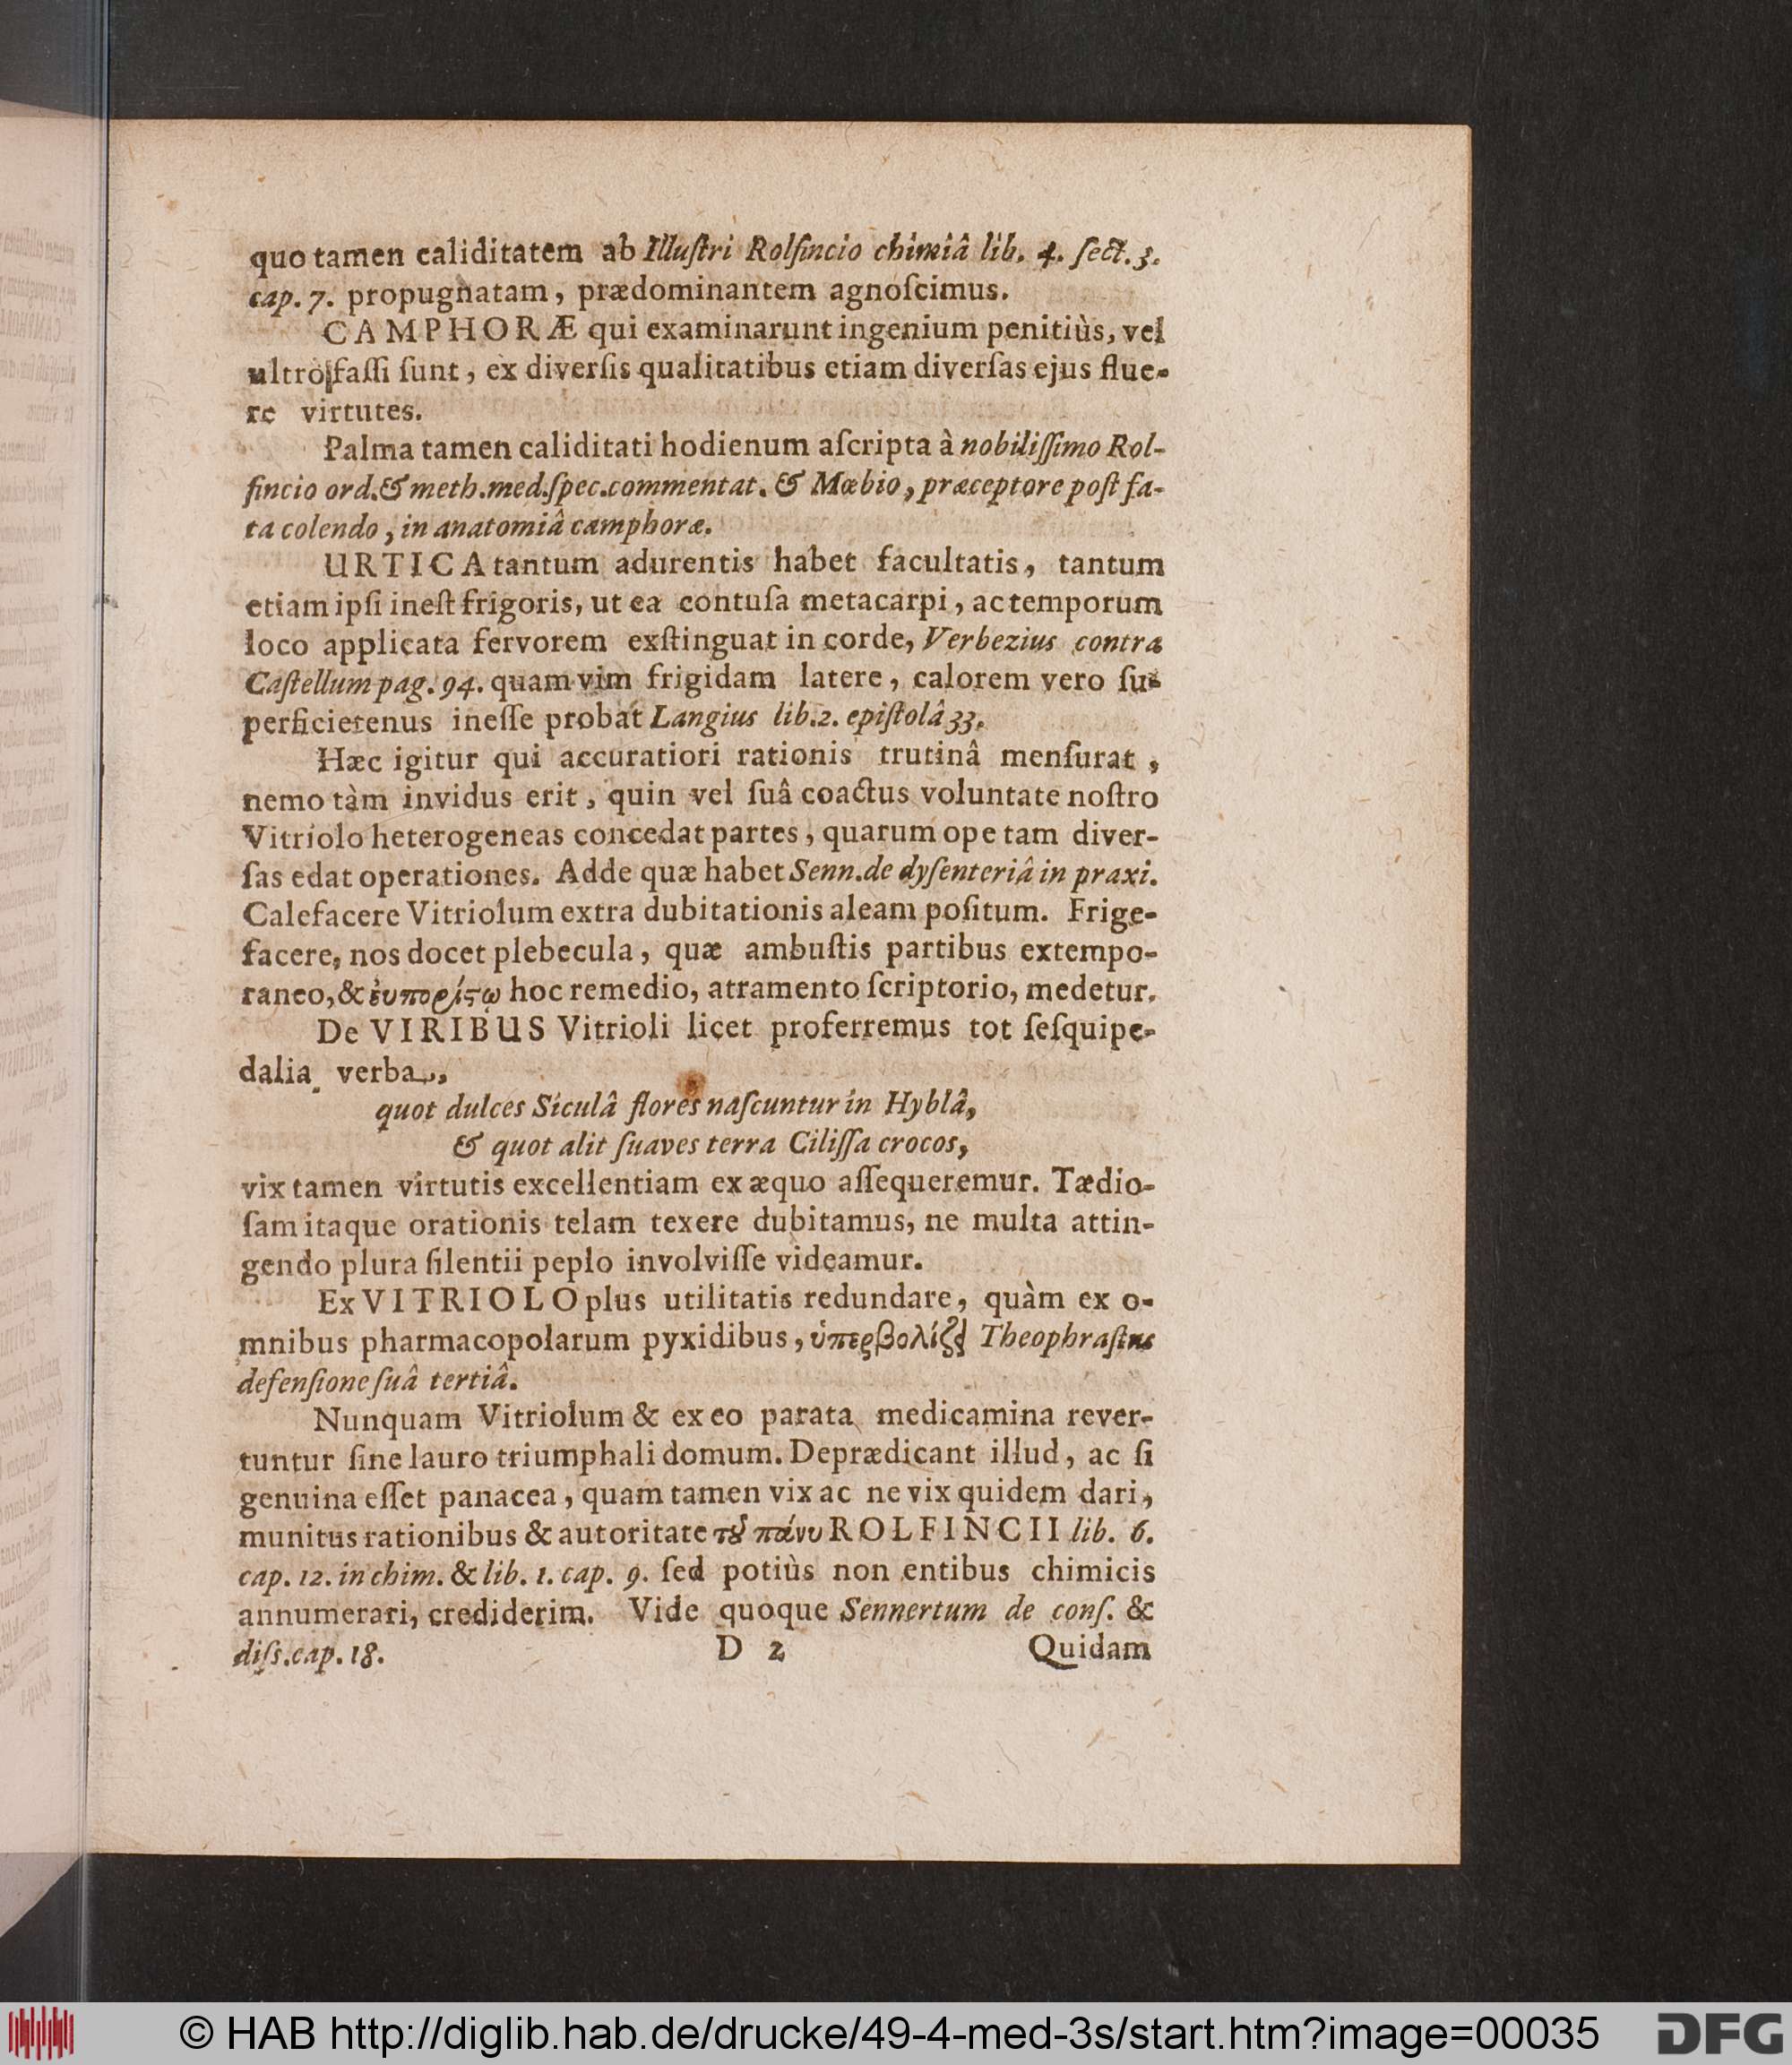 quo tamen caliditatem ab Illuſtri Rolfincio chimiâ lib. 4. ſect. 3.
cap. 7. propugnatam, prædominantem agnoſcimus.
CAMPHORÆ qui examinarunt ingenium penitiùs, vel
ultrò faſſi ſunt, ex diverſis qualitatibus etiam diverſas ejus flue-
re virtutes.
Palma tamen caliditati hodienum aſcripta à nobiliſſimo Rol-
fincio ord. & meth. med. ſpec. commentat. & Mœbio, præceptore poſt fa-
ta colendo, in anatomiâ camphoræ.
URTICA tantum adurentis habet facultatis, tantum
etiam ipſi ineſt frigoris, ut ea contuſa metacarpi, ac temporum
loco applicata fervorem exſtinguat in corde, Verbezius contra
Caſtellum pag. 94. quam vim frigidam latere, calorem vero ſu-
perficietenus ineſſe probat Langius lib. 2. epiſtolâ 33.
Hæc igitur qui accuratiori rationis trutinâ menſurat,
nemo tàm invidus erit, quin vel ſuâ coactus voluntate noſtro
Vitriolo heterogeneas concedat partes, quarum ope tam diver-
ſas edat operationes. Adde quæ habet Senn. de dyſenteriâ in praxi.
Calefacere Vitriolum extra dubitationis aleam poſitum. Frige-
facere, nos docet plebecula, quæ ambuſtis partibus extempo-
raneo, & ἐυπορίςῳ hoc remedio, atramento ſcriptorio, medetur.
De VIRIBUS Vitrioli licet proferremus tot ſeſquipe-
dalia verba,
quot dulces Siculâ flores naſcuntur in Hyblâ,
& quot alit ſuaves terra Ciliſſa crocos,
vix tamen virtutis excellentiam ex æquo aſſequeremur. Tædio-
ſam itaque orationis telam texere dubitamus, ne multa attin-
gendo plura ſilentii peplo involviſſe videamur.
Ex VITRIOLO plus utilitatis redundare, quàm ex o-
mnibus pharmacopolarum pyxidibus, ὑπερβολίζει Theophraſtus
defenſione ſuâ tertiâ.
Nunquam Vitriolum & ex eo parata medicamina rever-
tuntur ſine lauro triumphali domum. Deprædicant illud, ac ſi
genuina eſſet panacea, quam tamen vix ac ne vix quidem dari,
munitus rationibus & autoritate τȣ͂ πάνυ ROLFINCII lib. 6.
cap. 12. in chim. & lib. 1. cap. 9. ſed potiùs non entibus chimicis
annumerari, crediderim. Vide quoque Sennertum de conſ. &
diſs. cap. 18.
D 2 Quidam
© HAB http://diglib.hab.de/drucke/49-4-med-3s/start.htm?image=00035
DFG